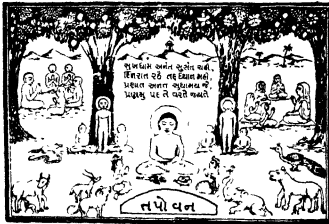 સુખધામ અનંત સુસંત ચહી
દિનરાત રહે તદ્ ધ્યાન મહીં
પ્રશાંત અનંત સુધામય જે
પ્રણમું પદ તે વરતે જયતે
તપોવન